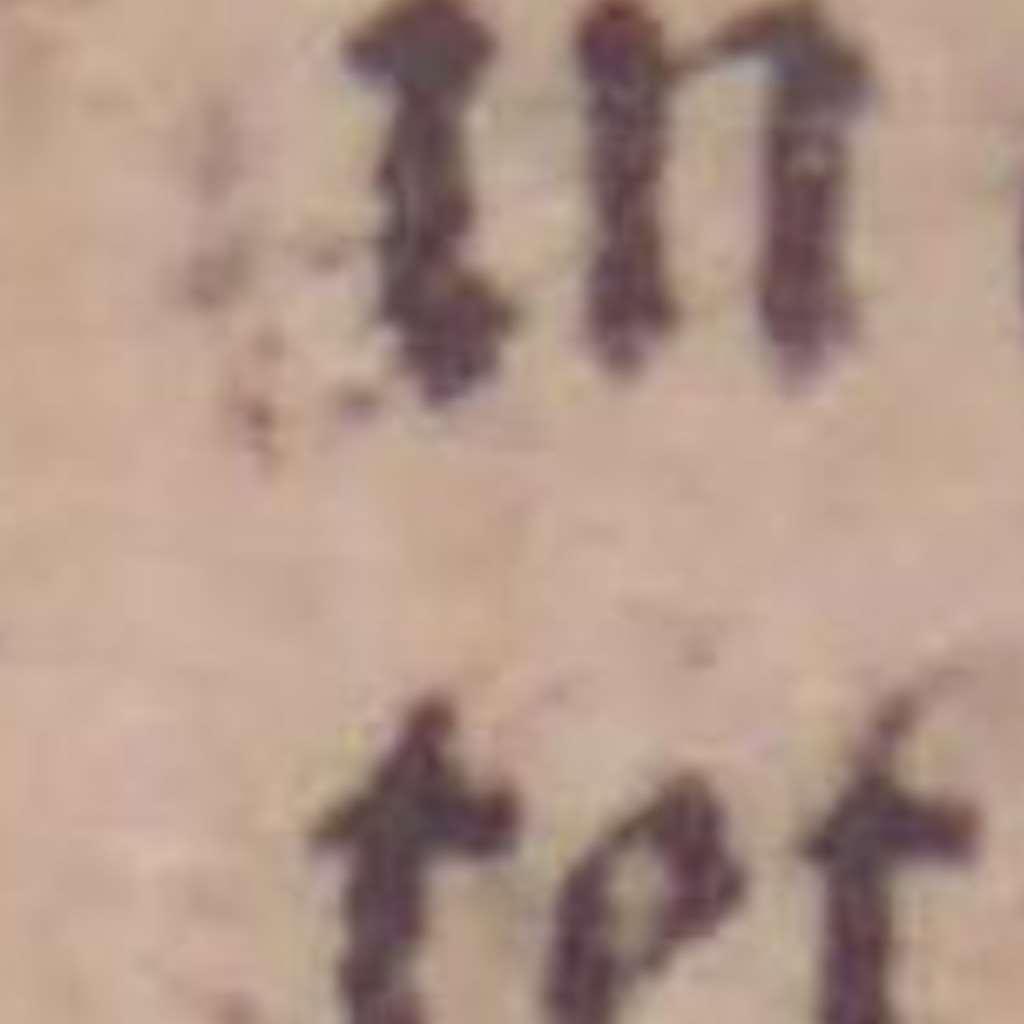 in
tet